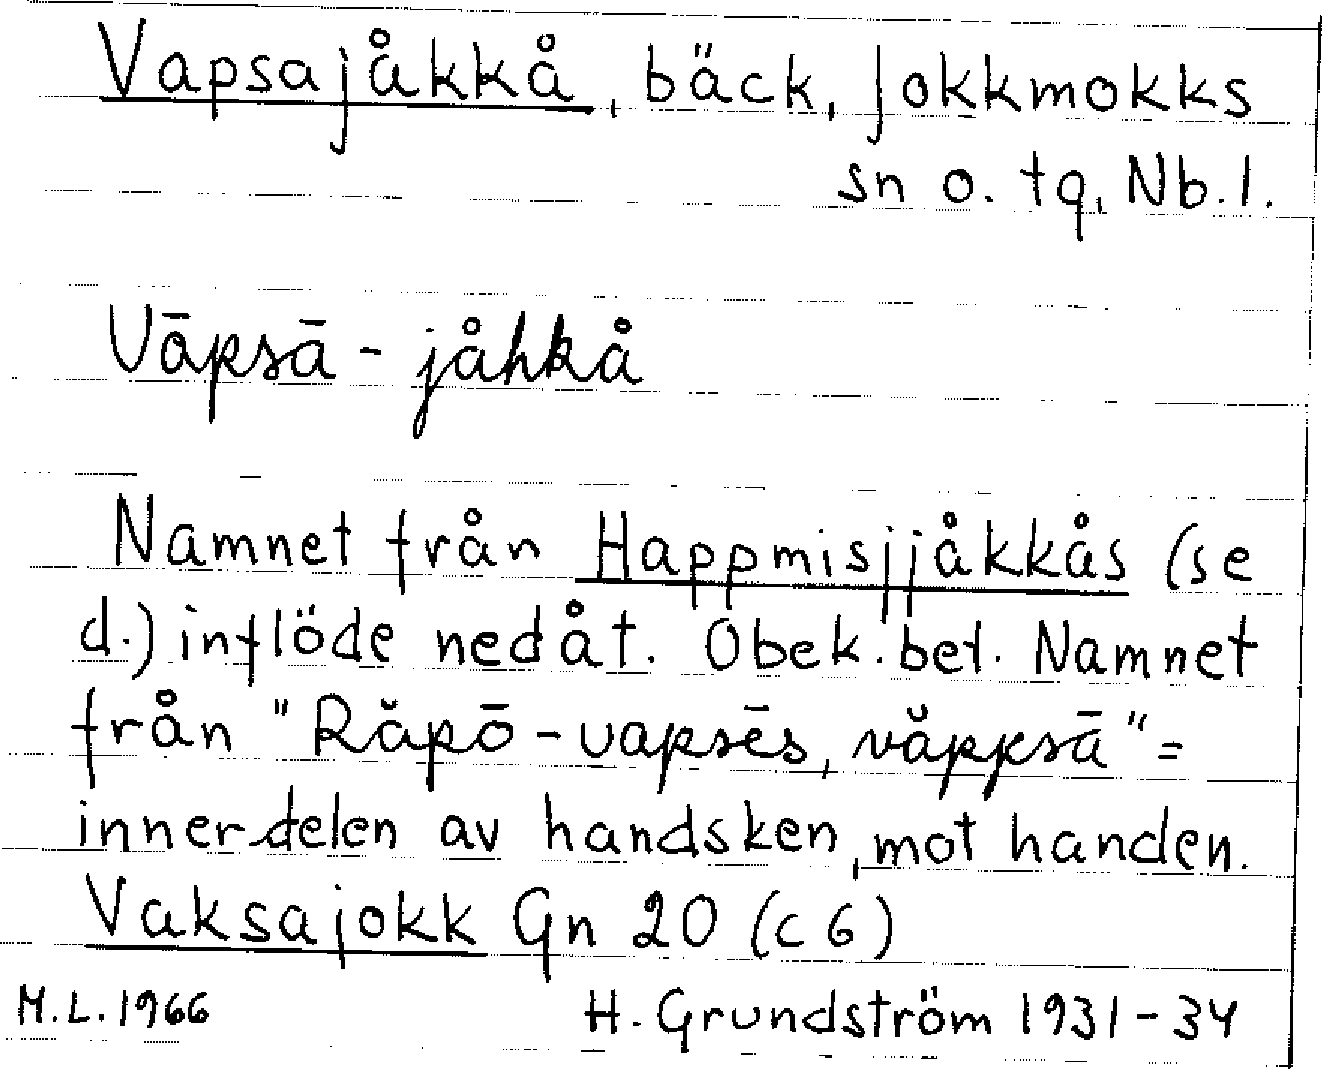 Vapsajåkkå, bäck, Jokkmokks
sn o. tg, Nb.l.
Vāpsā-jåhkå
Namnet från Happmisjjåkkås (se
d.) inflöde nedåt. Obek. bet. Namnet
från "Răpō-vapsēs, văppsā" =
innerdelen av handsken, mot handen.
Vaksajokk Gn 20 (c6)
M.L. 1966 H. Grundström 1931-34